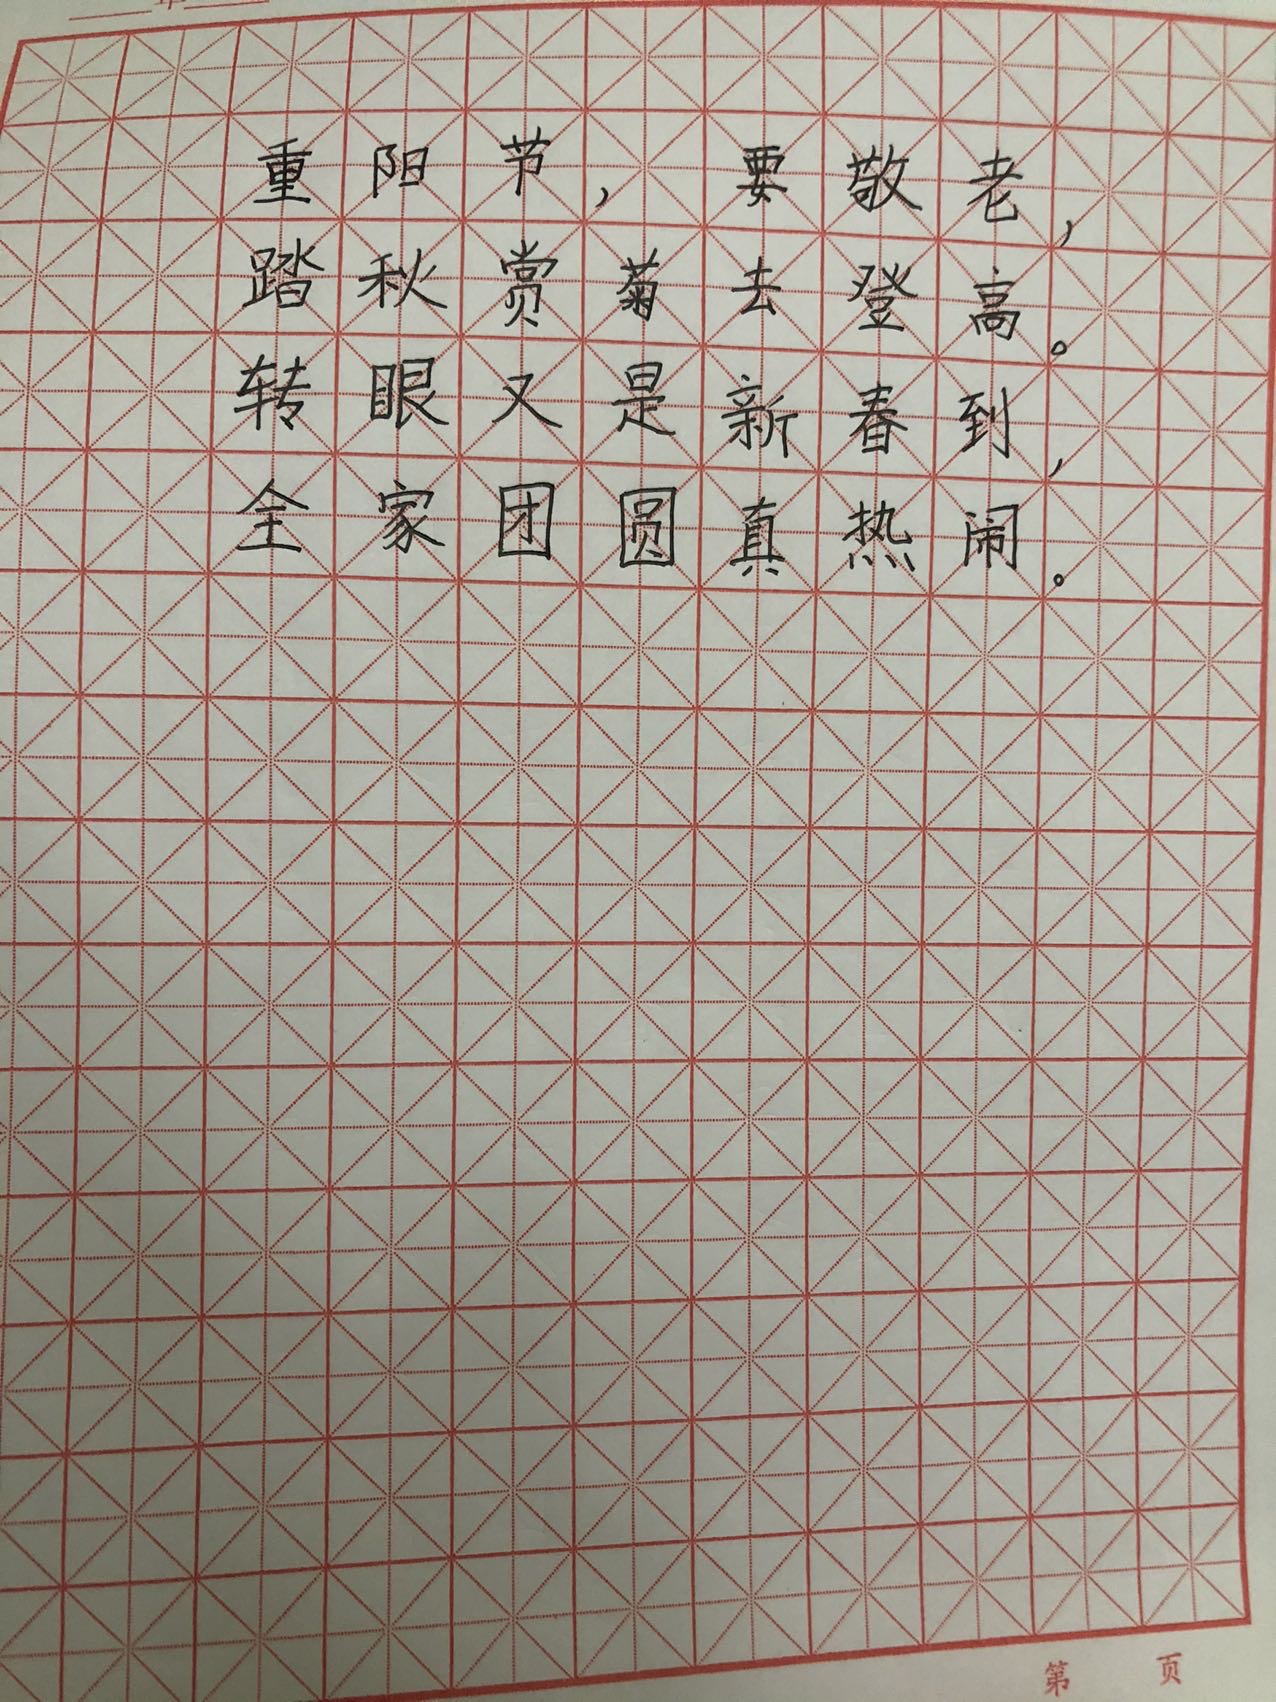 重阳节，要敬老，
踏秋赏菊去登高。
转眼又是新春到，
全家团圆真热闹。
第 页